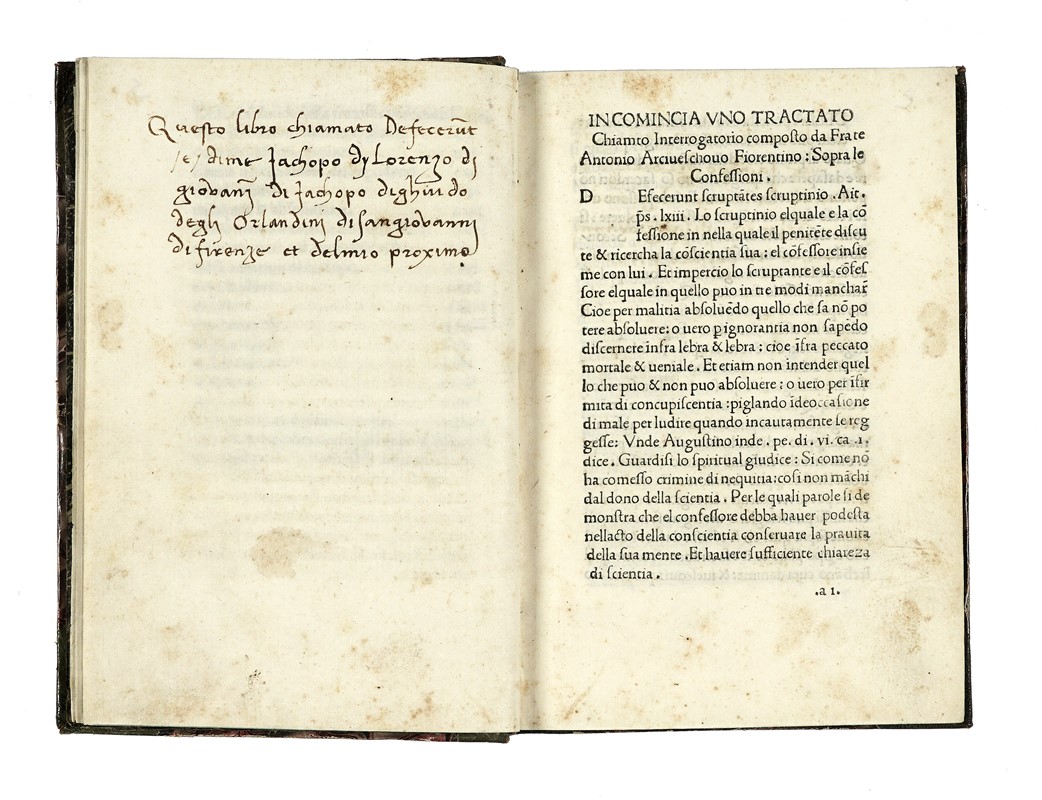 Questo libro chiamato Defecerūt
/e/ dime Jachopo dj Lorenzo di
giovanj̄ di Jachopo dighuido
degli Orlandini di sangiovanni
di firenze et delmio proximo
INCOMINCIA VNO TRACTATO
Chiamto Interrogatorio compoſto da Frate
Antonio Arciueſchouo Fiorentino : Sopra le
Confeſſioni .
D Efecerunt ſcruptātes ſcruptinio . Ait .
p̄s . lxiii . Lo ſcruptinio elquale e la cō
feſſione in nella quale il penitēte diſcu
te & ricercha la cōſcientia ſua : el cōfeſſore inſie
me con lui . Et impercio lo ſcruptante e il cōfeſ
ſore elquale in quello puo in tre modi manchar̄
Cioe per malitia abſoluēdo quello che ſa nō po
tere abſoluere : o uero p ignorantia non ſapēdo
diſcernere infra lebra & lebra : cioe īfra peccato
mortale & ueniale . Et etiam non intender quel
lo che puo & non puo abſoluere : o uero per īfir
mita di concupiſcentia : piglando īdeoccaſione
di male per ludire quando incautamente ſe reg
geſſe : Vnde Auguſtino inde . pe . di . vi . ca .1.
dice . Guardiſi lo ſpiritual giudice : Si come nō
ha comeſſo crimine di nequitia : coſi non māchi
dal dono della ſcientia . Per le quali parole ſi de
monſtra che el confeſſore debba hauer podeſta
nellacto della conſcientia conſeruare la prauita
della ſua mente . Et hauere ſufficiente chiareza
di ſcientia .
.a 1.